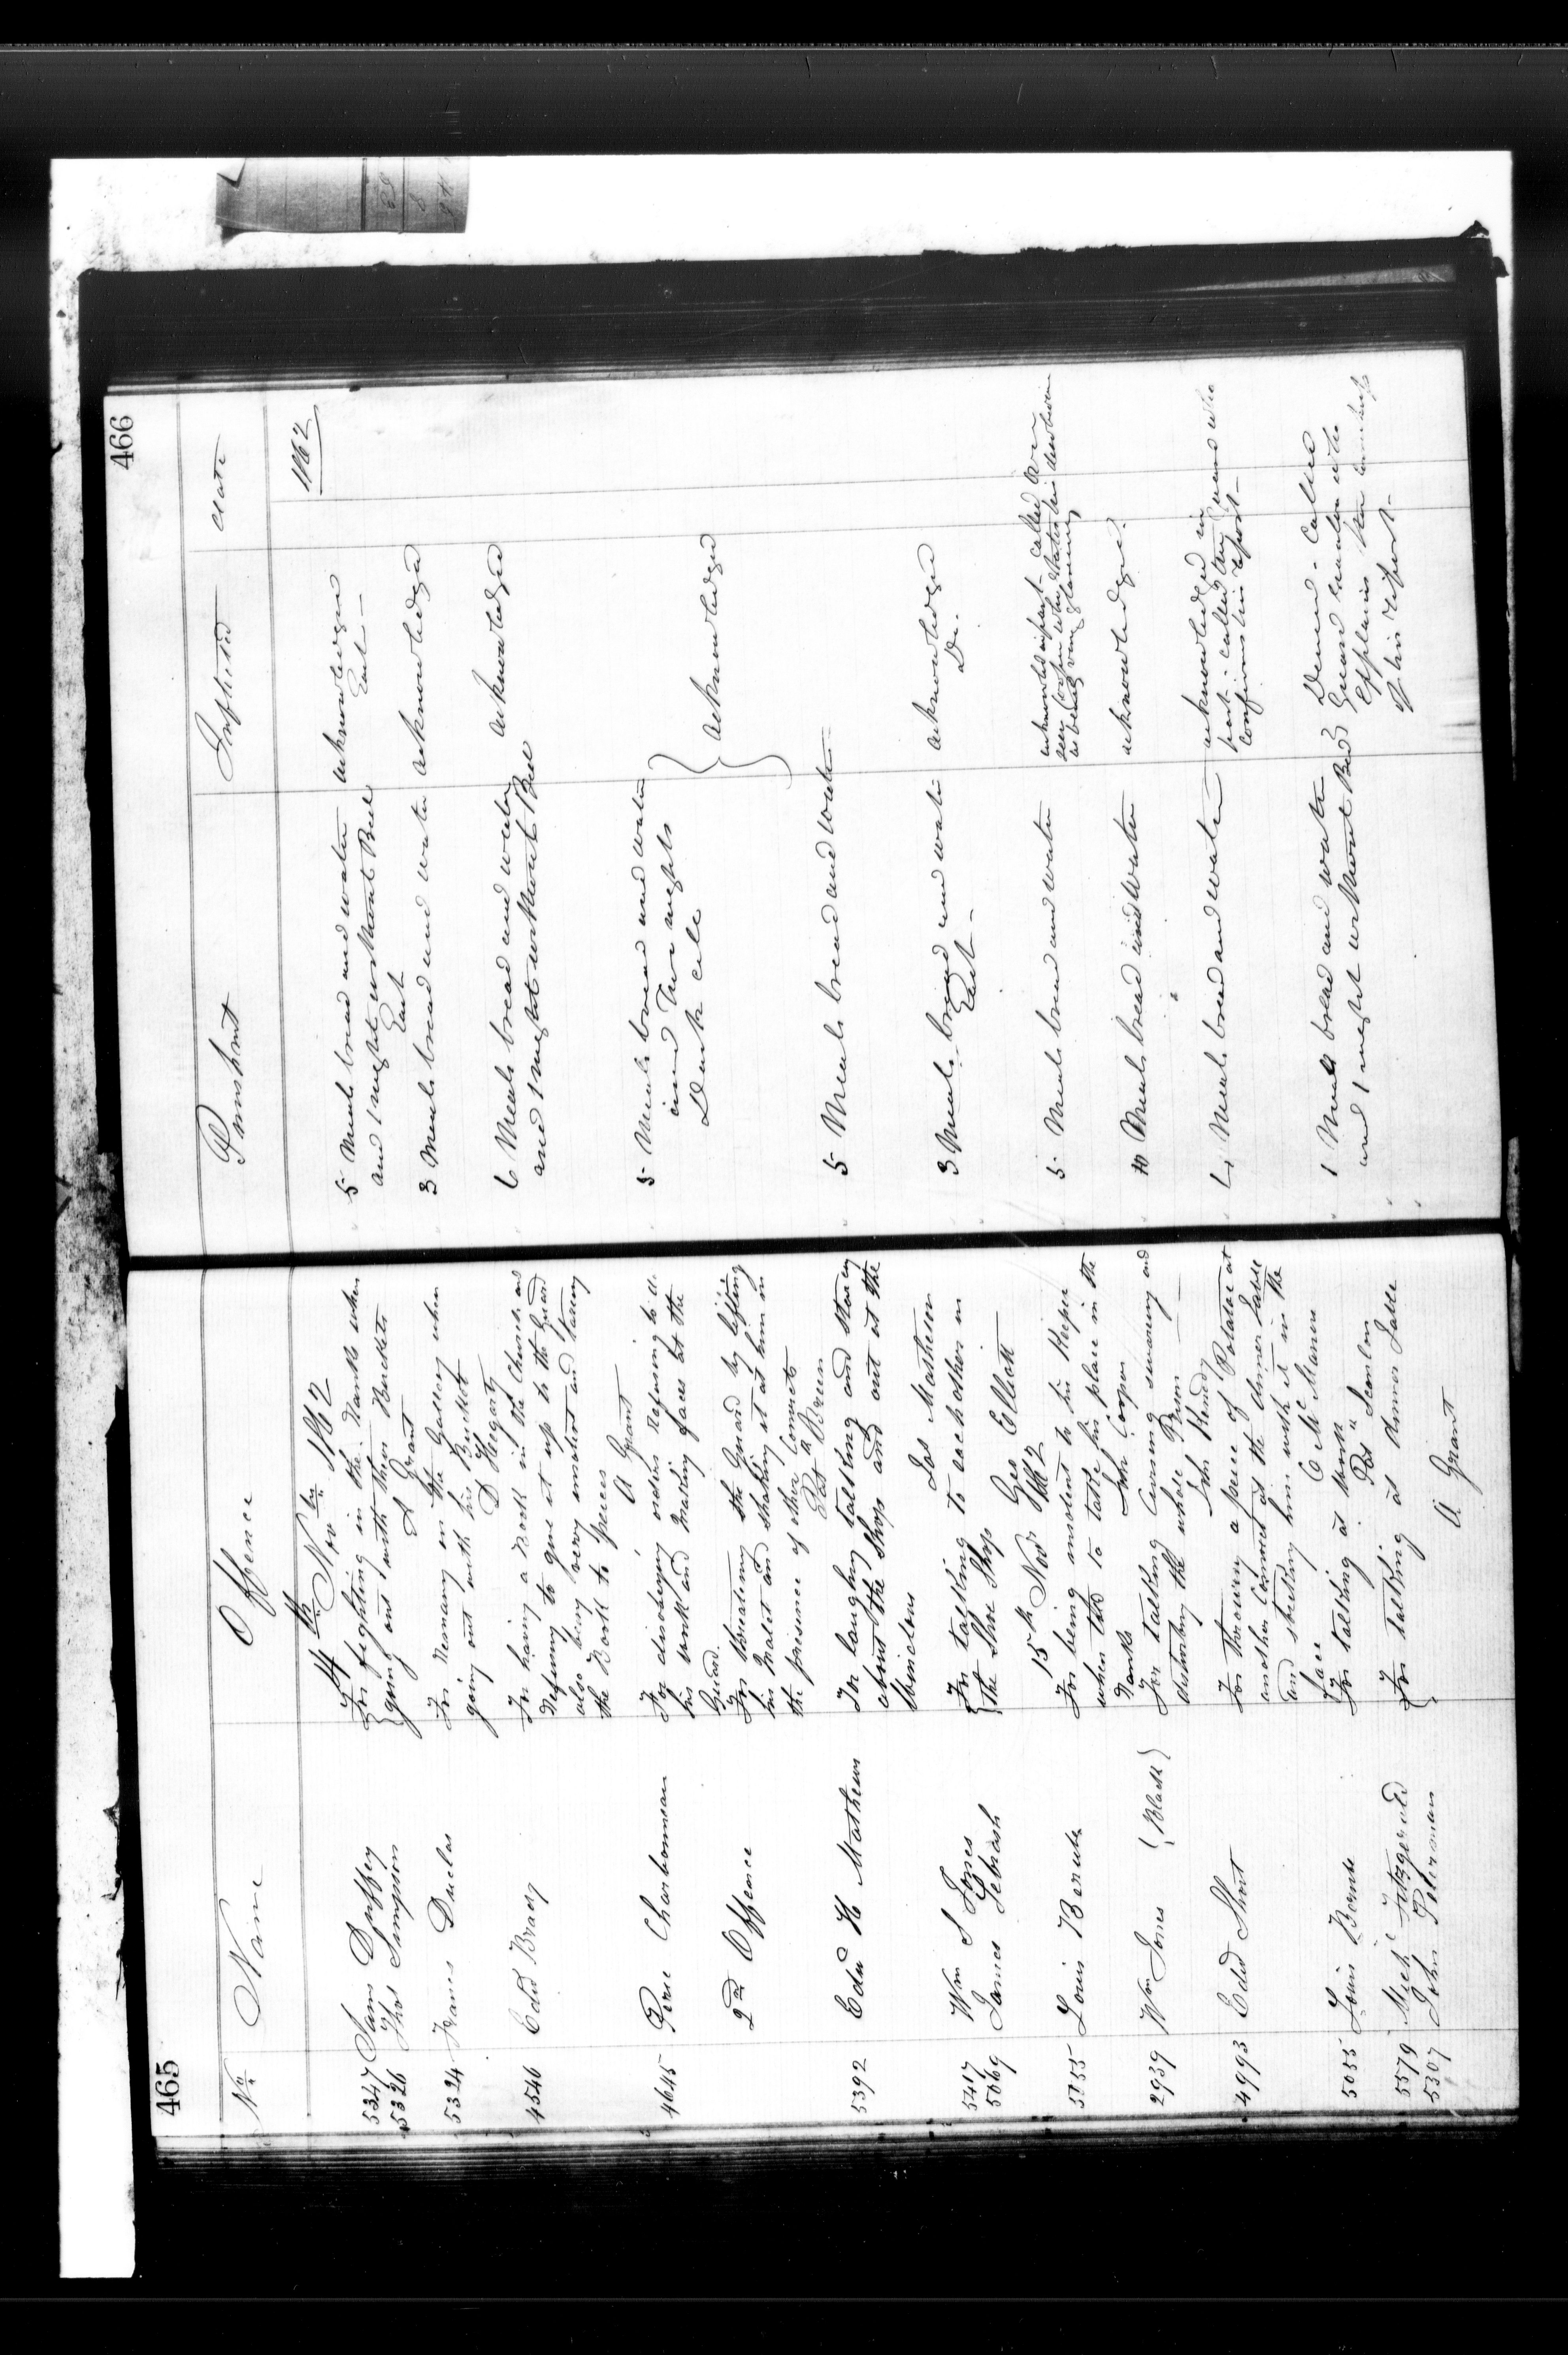 465
No. Name Offence
14th Novbr 1862
5347 Sam Duffey
5326 Thos Simpson
For fighting in the Ranks when
going out with their Buckets
A Grant
5324 Francis Duclos
For Remaining in the Gallery when
going out with his Bucket
D Hegarty
4546 Edwd Bracy
For having a Book in the Church and
Refusing to give it up to the Guard
also being very insolent and tearing
the Book to pieces
A Grant
4645 Pierre Charbonneau
For disobeying orders refusing to do
his work and Making faces at the
Guard.
2nd Offence
For threatening the Guard by lifting
his Malet and shaking it at him in
the presence of other Convicts
Pat k Breen
5392 Edwd H Mathews
For laughing talking and staring
about the Shop and out at the
Windows
Jas Matheson
5417 Wm S Jones
5069 James Lebrash
For talking to each other in
the Shoe Shop
Geo Elliott
15th Novr 1862
5055 Louis Berube
For being insolent to his Keeper
when told to take his place in the
Ranks
John Cooper
2939 Wm Jones (Black)
For talking Cursing swearing and
disturbing the whole Prison
John Kennedy
4993 Edwd Short
For throwing a piece of Potatoe at
another Convict at the dinner Table
and striking him with it in the
face
C McManus
5055 Louis Berube
For talking at work
Pat Scanlon
5579 Michl Fitzgerald
5307 John Peterman
For talking at dinner Table
A Grant
466
Punishment Inflicted Date
1862
5 Meals bread and water
and 1 night without Bed
Each
acknowledged
Each
3 Meals bread and water acknowledged
6 Meals bread and water
and 1 night without Bed
acknowledged
5 Meals bread and water
and two nights
Dark cell
acknowledged
5 Meals bread and water
3 Meals bread and water
Each
acknowledged
Do.
5 Meals bread and water
10 Meals bread and water acknowledged
Meals bread and water
acknowledged in
part called
confirms his report
1 Meals bread and water
and 1 night without Bed
Denied - Called
Guard Scanlon who
explains
of his report